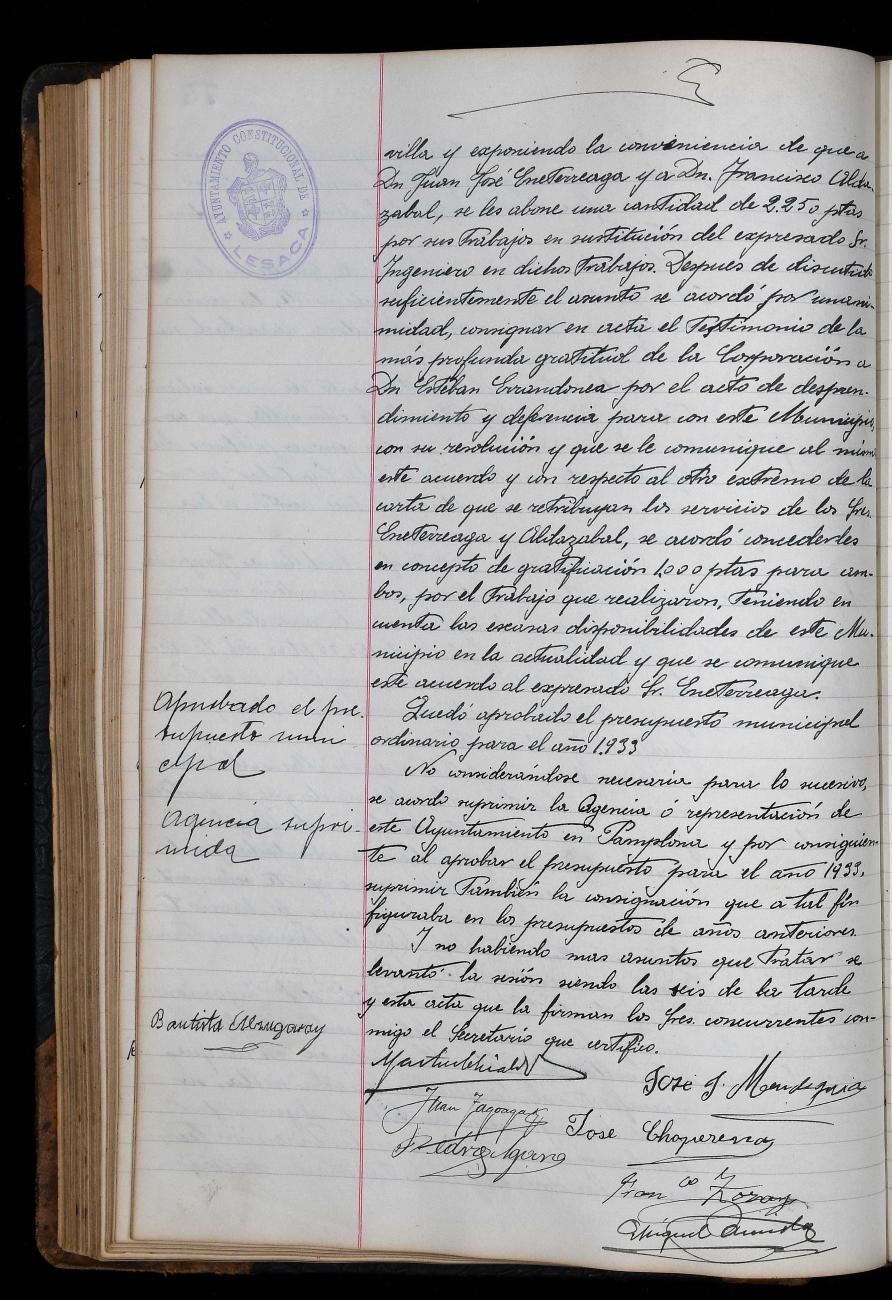 AYUNTAMIENTO CONSTITUCIONAL DE
LESACA
villa y exponiendo la conveniencia de que a
Dn Juan José Eneterreaga y a Dn. Francisco Alda-
zabal, se les abone una cantidad de 2.250 ptas
por sus trabajos en sustitución del expresado Sr.
Ingeniero en dichos trabajos. Después de discutido
suficientemente el asunto se acordó por unani-
midad, consignar en acta el Testimonio de la
más profunda gratitud de la Corporación a
Dn Esteban Errandonea por el acto de despren-
dimiento y deferencia para con este Municipio,
con su resolución y que se le comunique al mismo
este acuerdo y con respecto al otro extremo de la
carta de que se retribuyan los servicios de los Sres.
Eneterreaga y Aldazabal, se acordó concederles
en concepto de gratificación 1,000 ptas para am-
bos, por el trabajo que realizaron, teniendo en
cuenta las escasas disponibilidades de este Mu-
nicipio en la actualidad y que se comunique
este acuerdo al expresado Sr. Eneterreaga.
Aprobado el pre-
supuesto muni
cipal
Quedó aprobado el presupuesto municipal
ordinario para el año 1.933
Agencia supri-
mida
No considerándose necesaria para lo sucesivo,
se acordo suprimir la Agencia ó representación de
este Ayuntamiento en Pamplona y por consiguien-
te al aprobar el presupuesto para el año 1933,
suprimir También la consignación que a tal fin
figuraba en los presupuestos de años anteriores
Y no habiendo mas asuntos que tratar se
levantó la sesión siendo las seis de la tarde
y esta acta que la firman los Sres. concurrentes con-
migo el Secretario que certifico.
Bautista
José J. Mendeguia
Juan
José Choperena
Pedro
Franco
Miguel